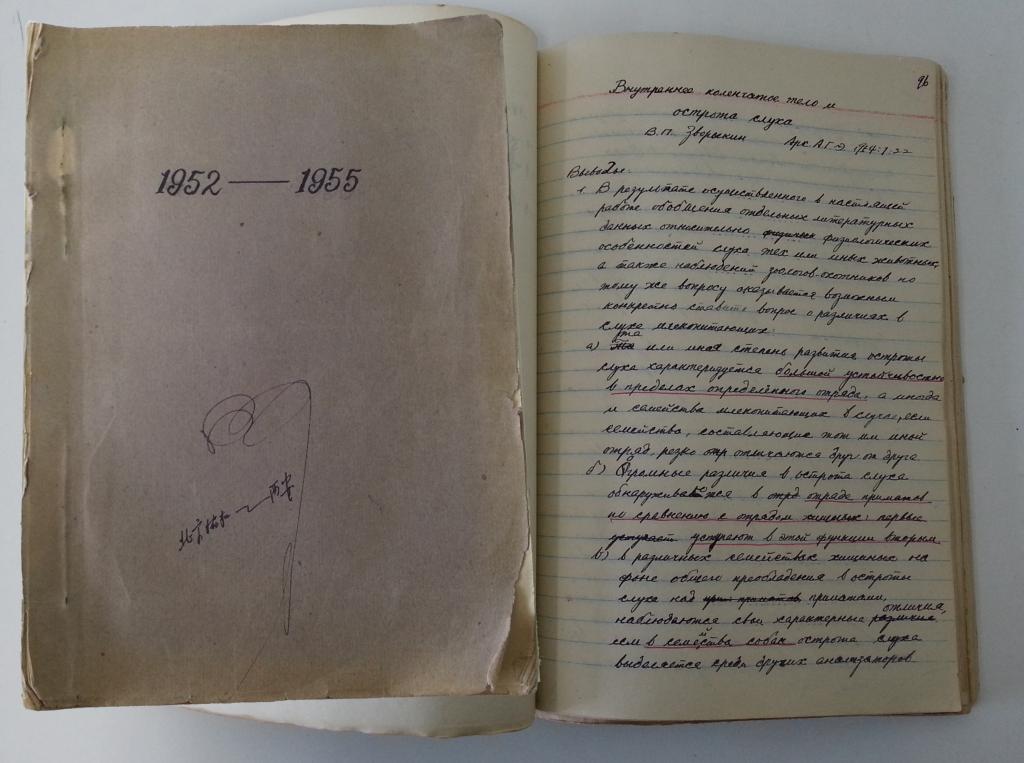 1952 — 1955
北京
西安
96
Внутреннее коленчатое тело и
острота слуха
В.П. Зверыкин Арх. А.Г.Э.
Выводы:
1. В результате осуществленного в настоящей
работе обобщения отдельных литературных
данных относительно физиологических
особенностей слуха тех или иных животных,
а также наблюдений зоологов-охотников по
тому же вопросу оказывается возможным
конкретно ставить вопрос о различиях в
слухе млекопитающих:
а) та или иная степень развития остроты
слуха характеризуется большой устойчивостью
в пределах определённого отряда, а иногда
и семейства млекопитающих в случае, если
семейства, составляющие тот или иной
отряд, резко отличаются друг от друга
б) Огромные различия в острота слуха
обнаруживается в отряде приматов
по сравнению с отрядом хищных: первые
уступают в этой функции вторым
в) в различных семействах хищных на
фоне общего преобладения в остроты
слуха над приматами,
наблюдаются свои характерные отличия,
если в семейства собак острота слуха
выделяется среди других анализаторов